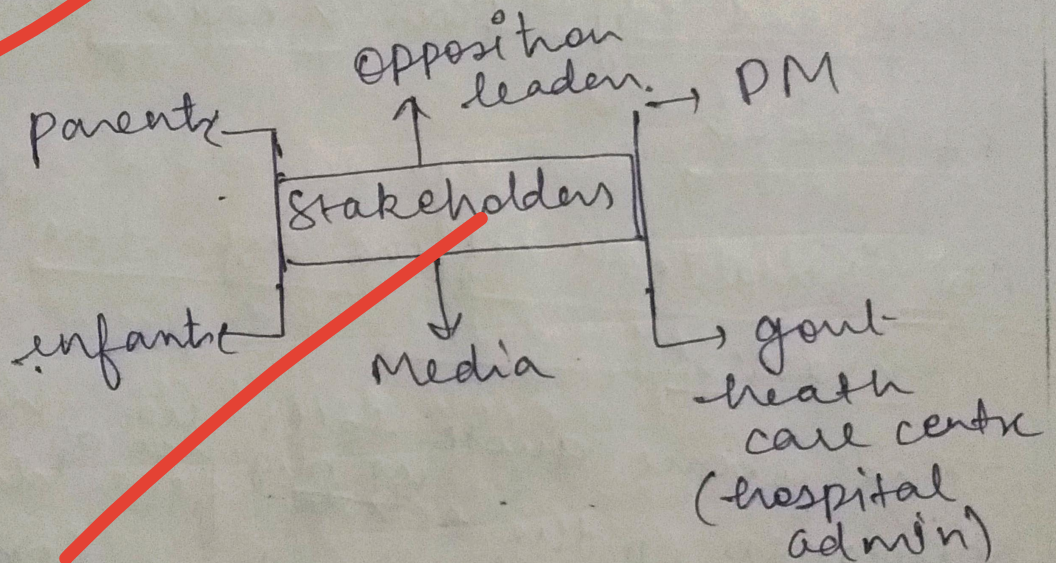 opposition
leader.
DM
parents
Stakeholders
infants
Media
govt
heath
care centre
(hospital
admin)